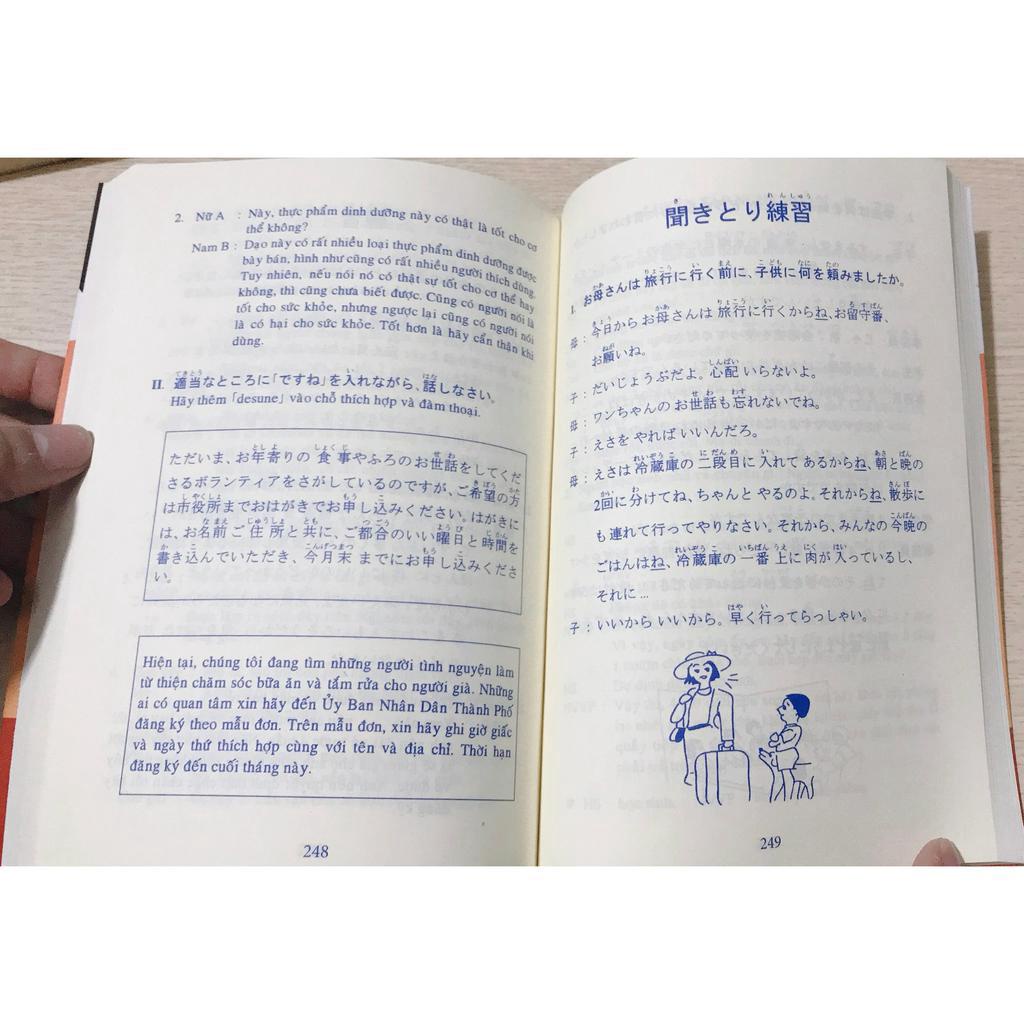 2. Nữ A : Này, thực phẩm dinh dưỡng này có thật là tốt cho cơ
thể không?
Nam B : Dạo này có rất nhiều loại thực phẩm dinh dưỡng được
bày bán, hình như cũng có rất nhiều người thích dùng.
Tuy nhiên, nếu nói nó có thật sự tốt cho cơ thể hay
không, thì cũng chưa biết được. Cũng có người nói là
tốt cho sức khỏe, nhưng ngược lại cũng có người nói
là có hại cho sức khỏe. Tốt hơn là hãy cẩn thận khi
dùng.
II. 適当なところに「ですね」を入れながら、話しなさい。
Hãy thêm「desune」vào chỗ thích hợp và đàm thoại.
ただいま、お年寄りの食事やふろのお世話をしてくだ
さるボランティアをさがしているのですが、ご希望の方
は市役所までおはがきでお申し込みください。はがきに
は、お名前ご住所と共に、ご都合のいい曜日と時間を
書き込んでいただき、今月末までにお申し込みくださ
い。
Hiện tại, chúng tôi đang tìm những người tình nguyện làm
từ thiện chăm sóc bữa ăn và tắm rửa cho người già. Những
ai có quan tâm xin hãy đến Ủy Ban Nhân Dân Thành Phố
đăng ký theo mẫu đơn. Trên mẫu đơn, xin hãy ghi giờ giấc
và ngày thứ thích hợp cùng với tên và địa chỉ. Thời hạn
đăng ký đến cuối tháng này.
248
聞きとり練習
I. お母さんは旅行に行く前に、子供に何を頼みましたか。
母：今日からお母さんは旅行に行くからね、お留守番、
お願いね。
子：だいじょうぶだよ。心配いらないよ。
母：ワンちゃんのお世話も忘れないでね。
子：えさを やれば いいんだろ。
母：えさは冷蔵庫の二段目に入れて あるからね、朝と晩の
2回に分けてね、ちゃんと やるのよ。それからね、散歩に
も連れて行ってやりなさい。それから、みんなの今晩の
ごはんはね、冷蔵庫の一番上に肉が入っているし、
それに...
子：いいから いいから。早く行ってらっしゃい。
249